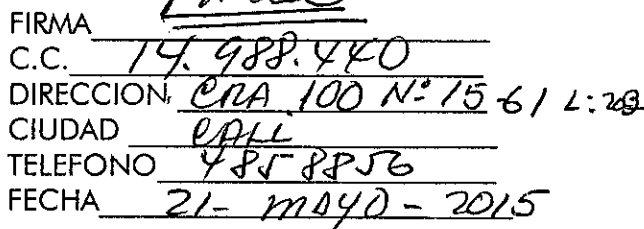 FIRMA
C.C. 14.988.440
DIRECCION CRA 100 Nº 15-61 L:203
CIUDAD CALI
TELEFONO 4858856
FECHA 21- MAYO - 2015